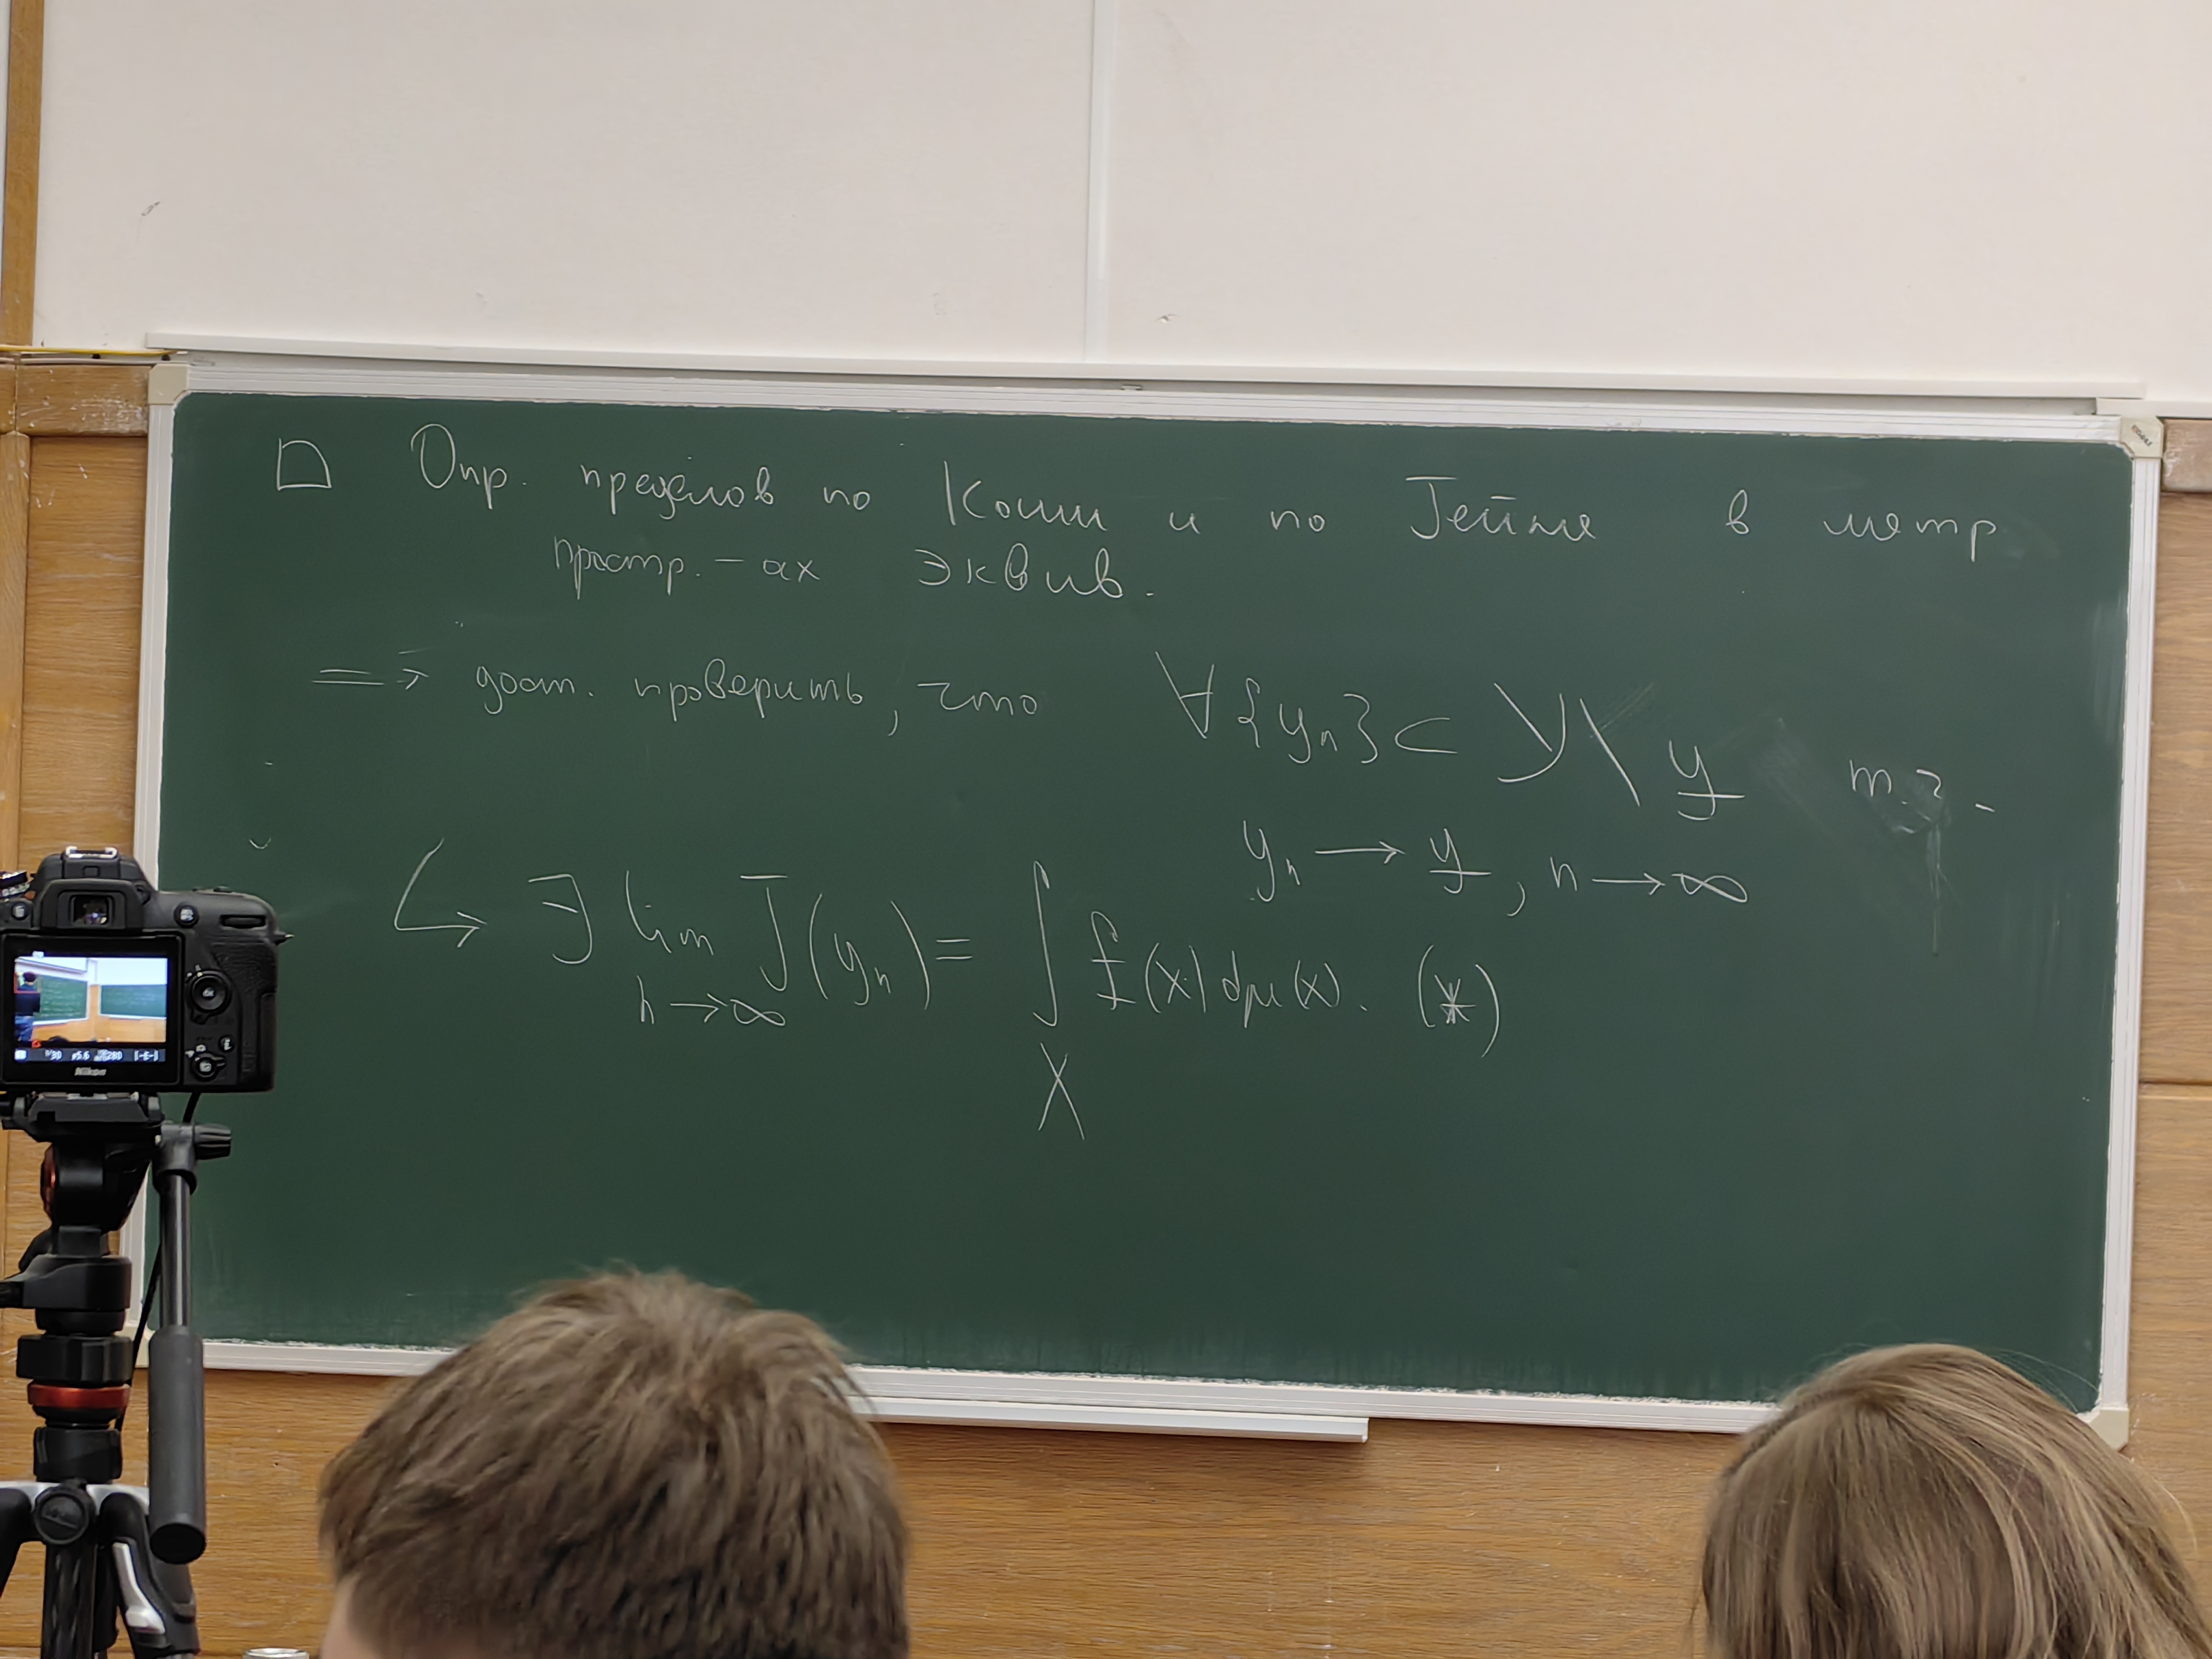 □ Опр. пределов по Коши и по Гейне в метр.
простр.-ах эквив.
⟹ дост. проверить, что ∀{yₙ} ⊂ Y \ y̲ т.ч.
yₙ → y̲, n → ∞
↳ ∃ lim J(yₙ) = ∫ f̲(x) dμ(x). (*)
n → ∞ X
Nikon